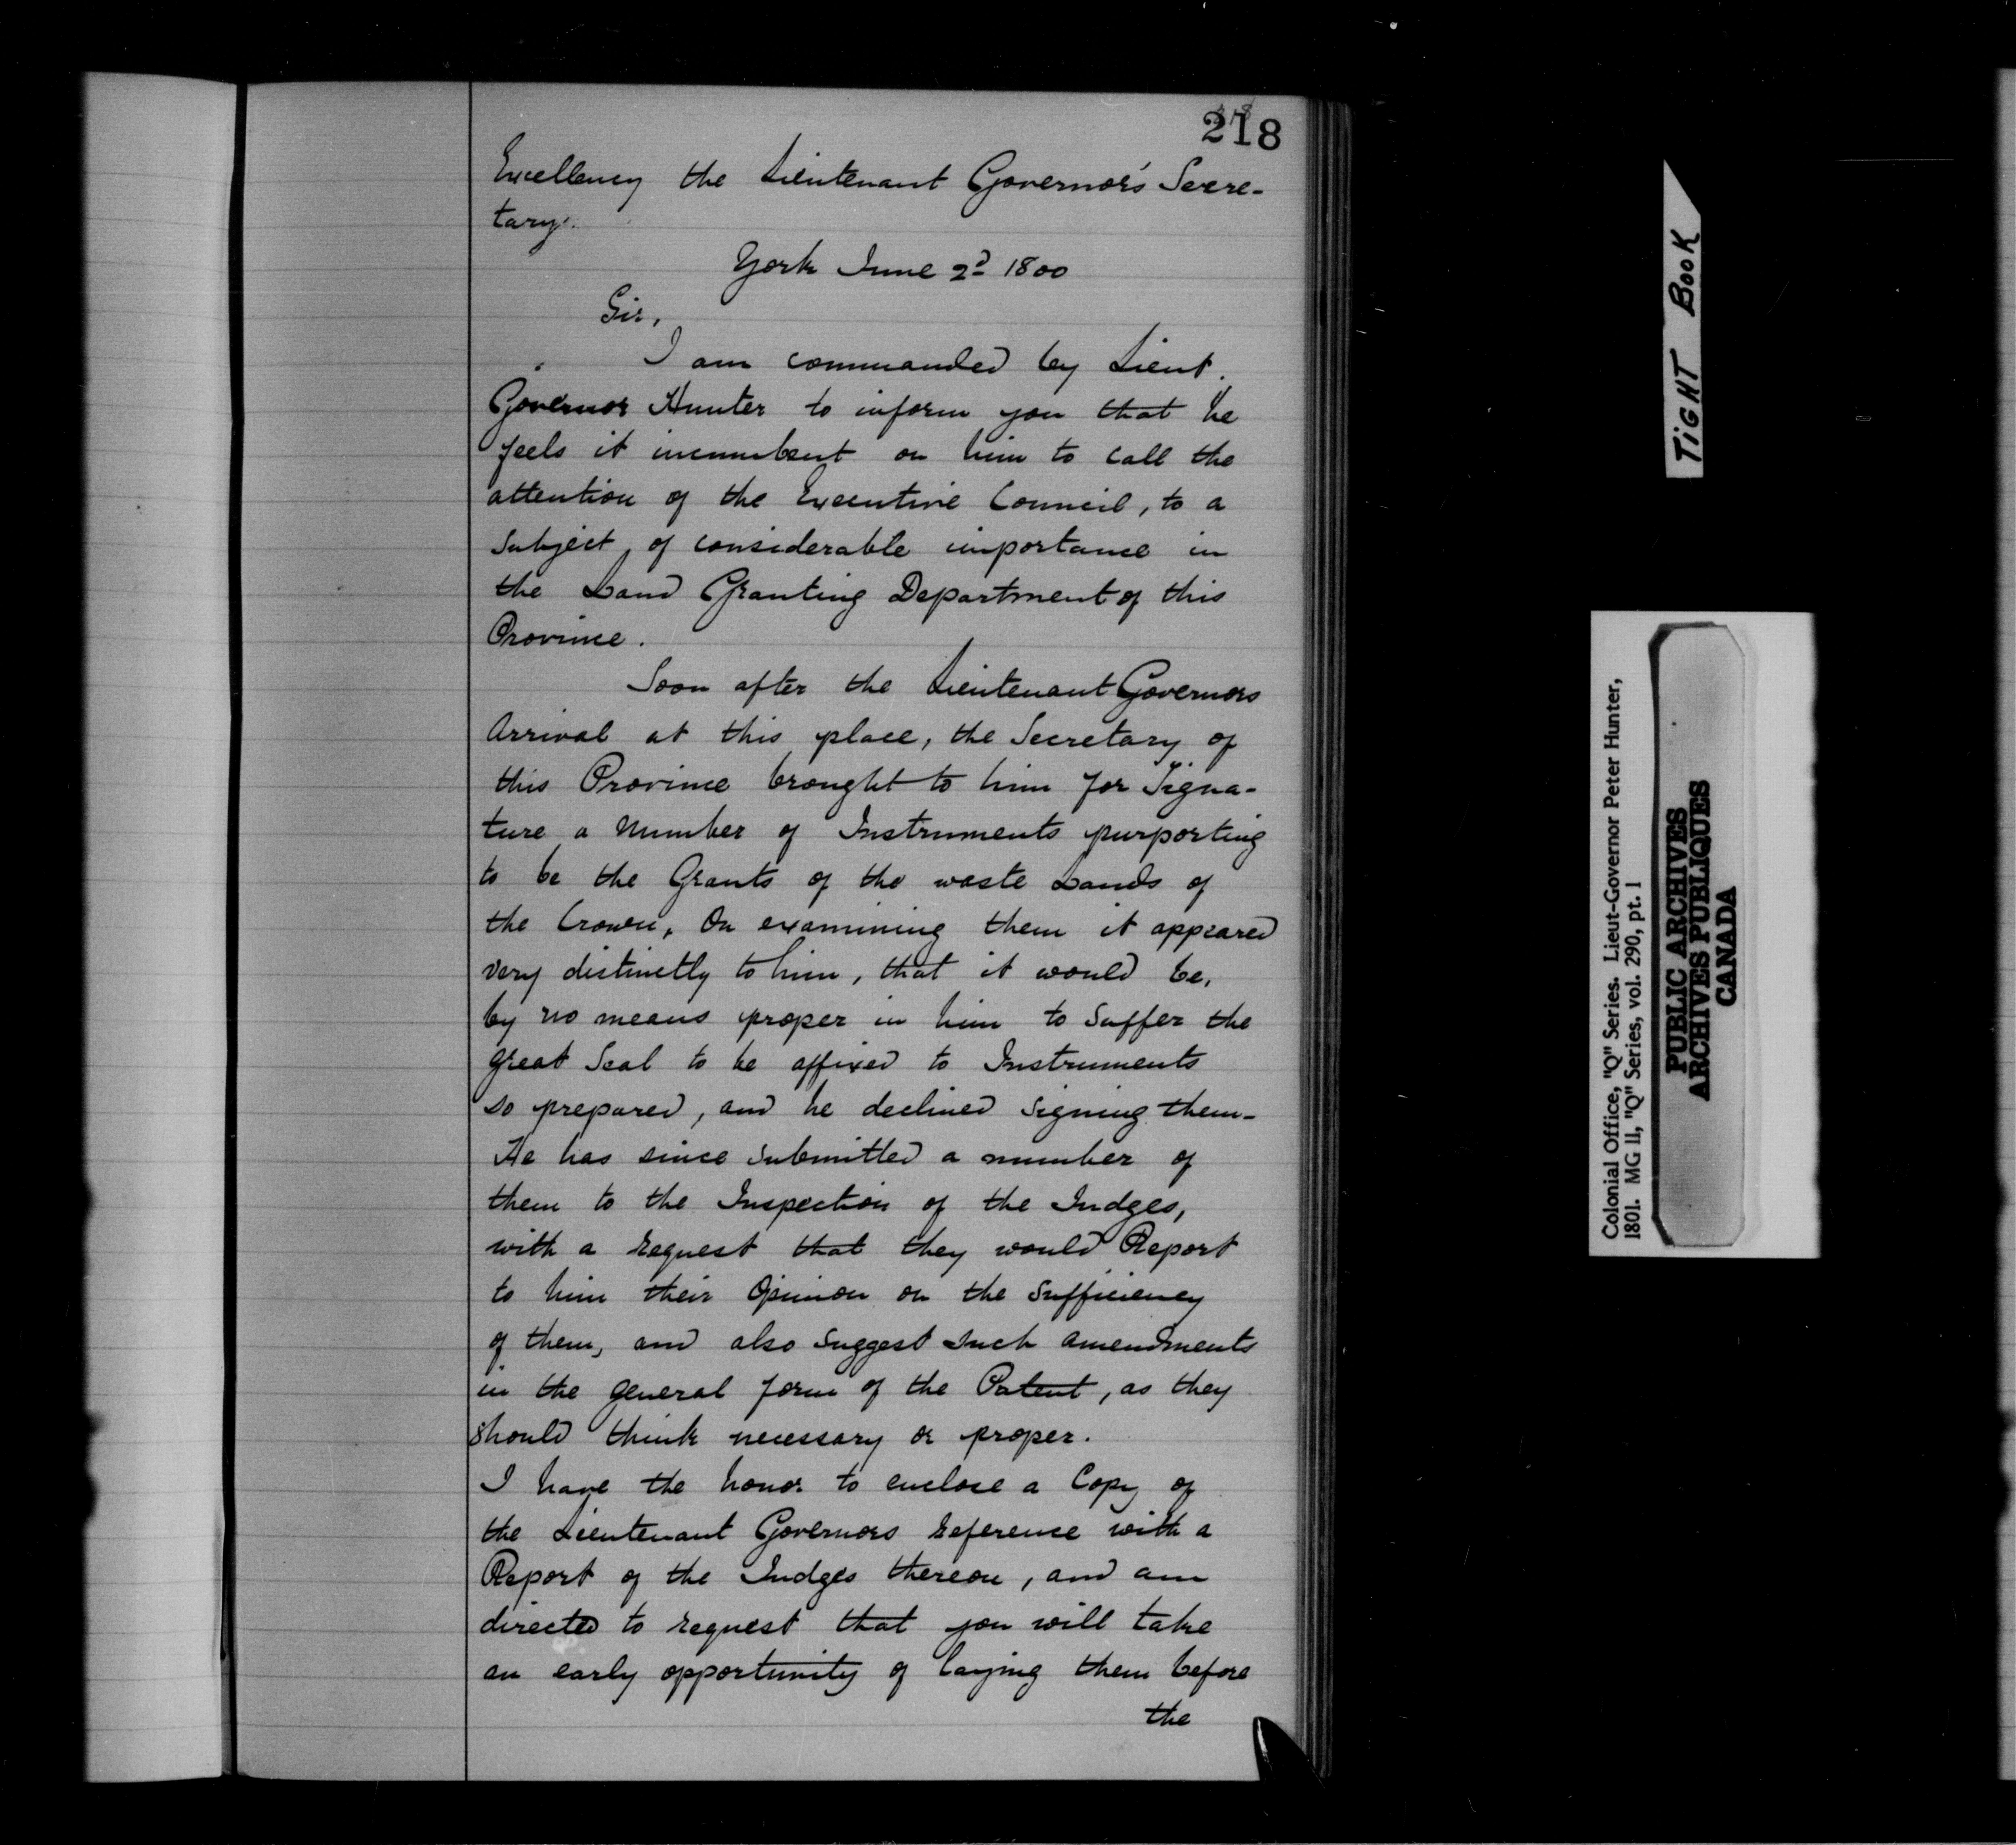 218
Excellency the Lieutenant Governor's Secre-
tary.
York June 2d 1800
Sir,
I am commanded by Lieut.
Governor Hunter to inform you that he
feels it incumbent on him to call the
attention of the Executive Council, to a
subject, of considerable importance in
the Land Granting Department of this
Province.
Soon after the Lieutenant Governors
Arrival at this place, the Secretary of
this Province brought to him for Signa-
ture a Number of Instruments purporting
to be the Grants of the waste Lands of
the Crown, On examining them it appeared
very distinctly to him, that it would be,
by no means proper in him to Suffer the
great Seal to be affixed to Instruments
so prepared, and he declined signing them-
He has since submitted a number of
them to the Inspection of the Judges,
with a request that they would Report
to him their Opinion on the Sufficiency
of them, and also suggest such amendments
in the general form of the Patent, as they
should think necessary or proper.
I have the honor to enclose a Copy of
the Lieutenant Governors reference with a
Report of the Judges thereon, and am
directed to request that you will take
an early opportunity of laying them before
the
TIGHT BOOK
Colonial Office, "Q" Series. Lieut-Governor Peter Hunter,
1801. MG 11, "Q" Series, vol. 290, pt. 1
PUBLIC ARCHIVES
ARCHIVES PUBLIQUES
CANADA